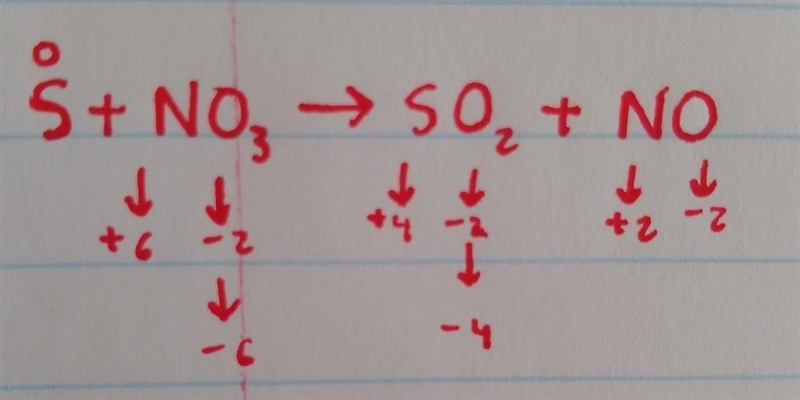 0
S + NO₃ → SO₂ + NO
↓ ↓ ↓ ↓ ↓ ↓
+6 -2 +4 -2 +2 -2
↓ ↓
-6 -4